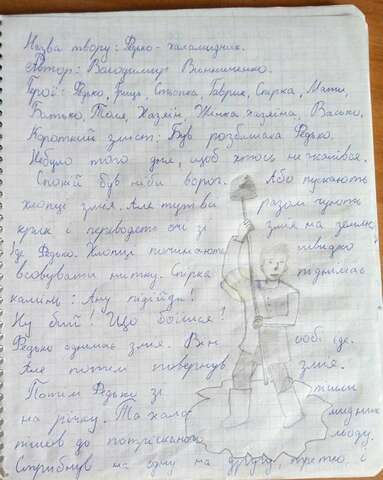 Назва твору: Федько-халамидник.
Автор: Володимир Винниченко.
Герої: Федько, Стьопка, Гаврик, Спірка, Мати,
Батько, Толя, Хазяїн, Жінка хазяїна, Васько.
Короткий зміст: Був розбишака Федько.
Небуло того дня, щоб хтось не жалівся.
Спокій був ніби ворог. Або пускають
хлопці змія. Але тут ва разом чують
крик і переводять очі зі змія на землю,
де Федько. Хлопці починають швидко
всовувати нитку. Спірка піднімає
камінь: Ану підійди!
Ну бий! Що боїшся!
Федько однімає змія. Він собі іде.
Але потім повернув змія.
Потім Федько зі
на річку. Та хала мидник
пішов до потрісканого льоду.
Стрибнув на одну на другу, третю і